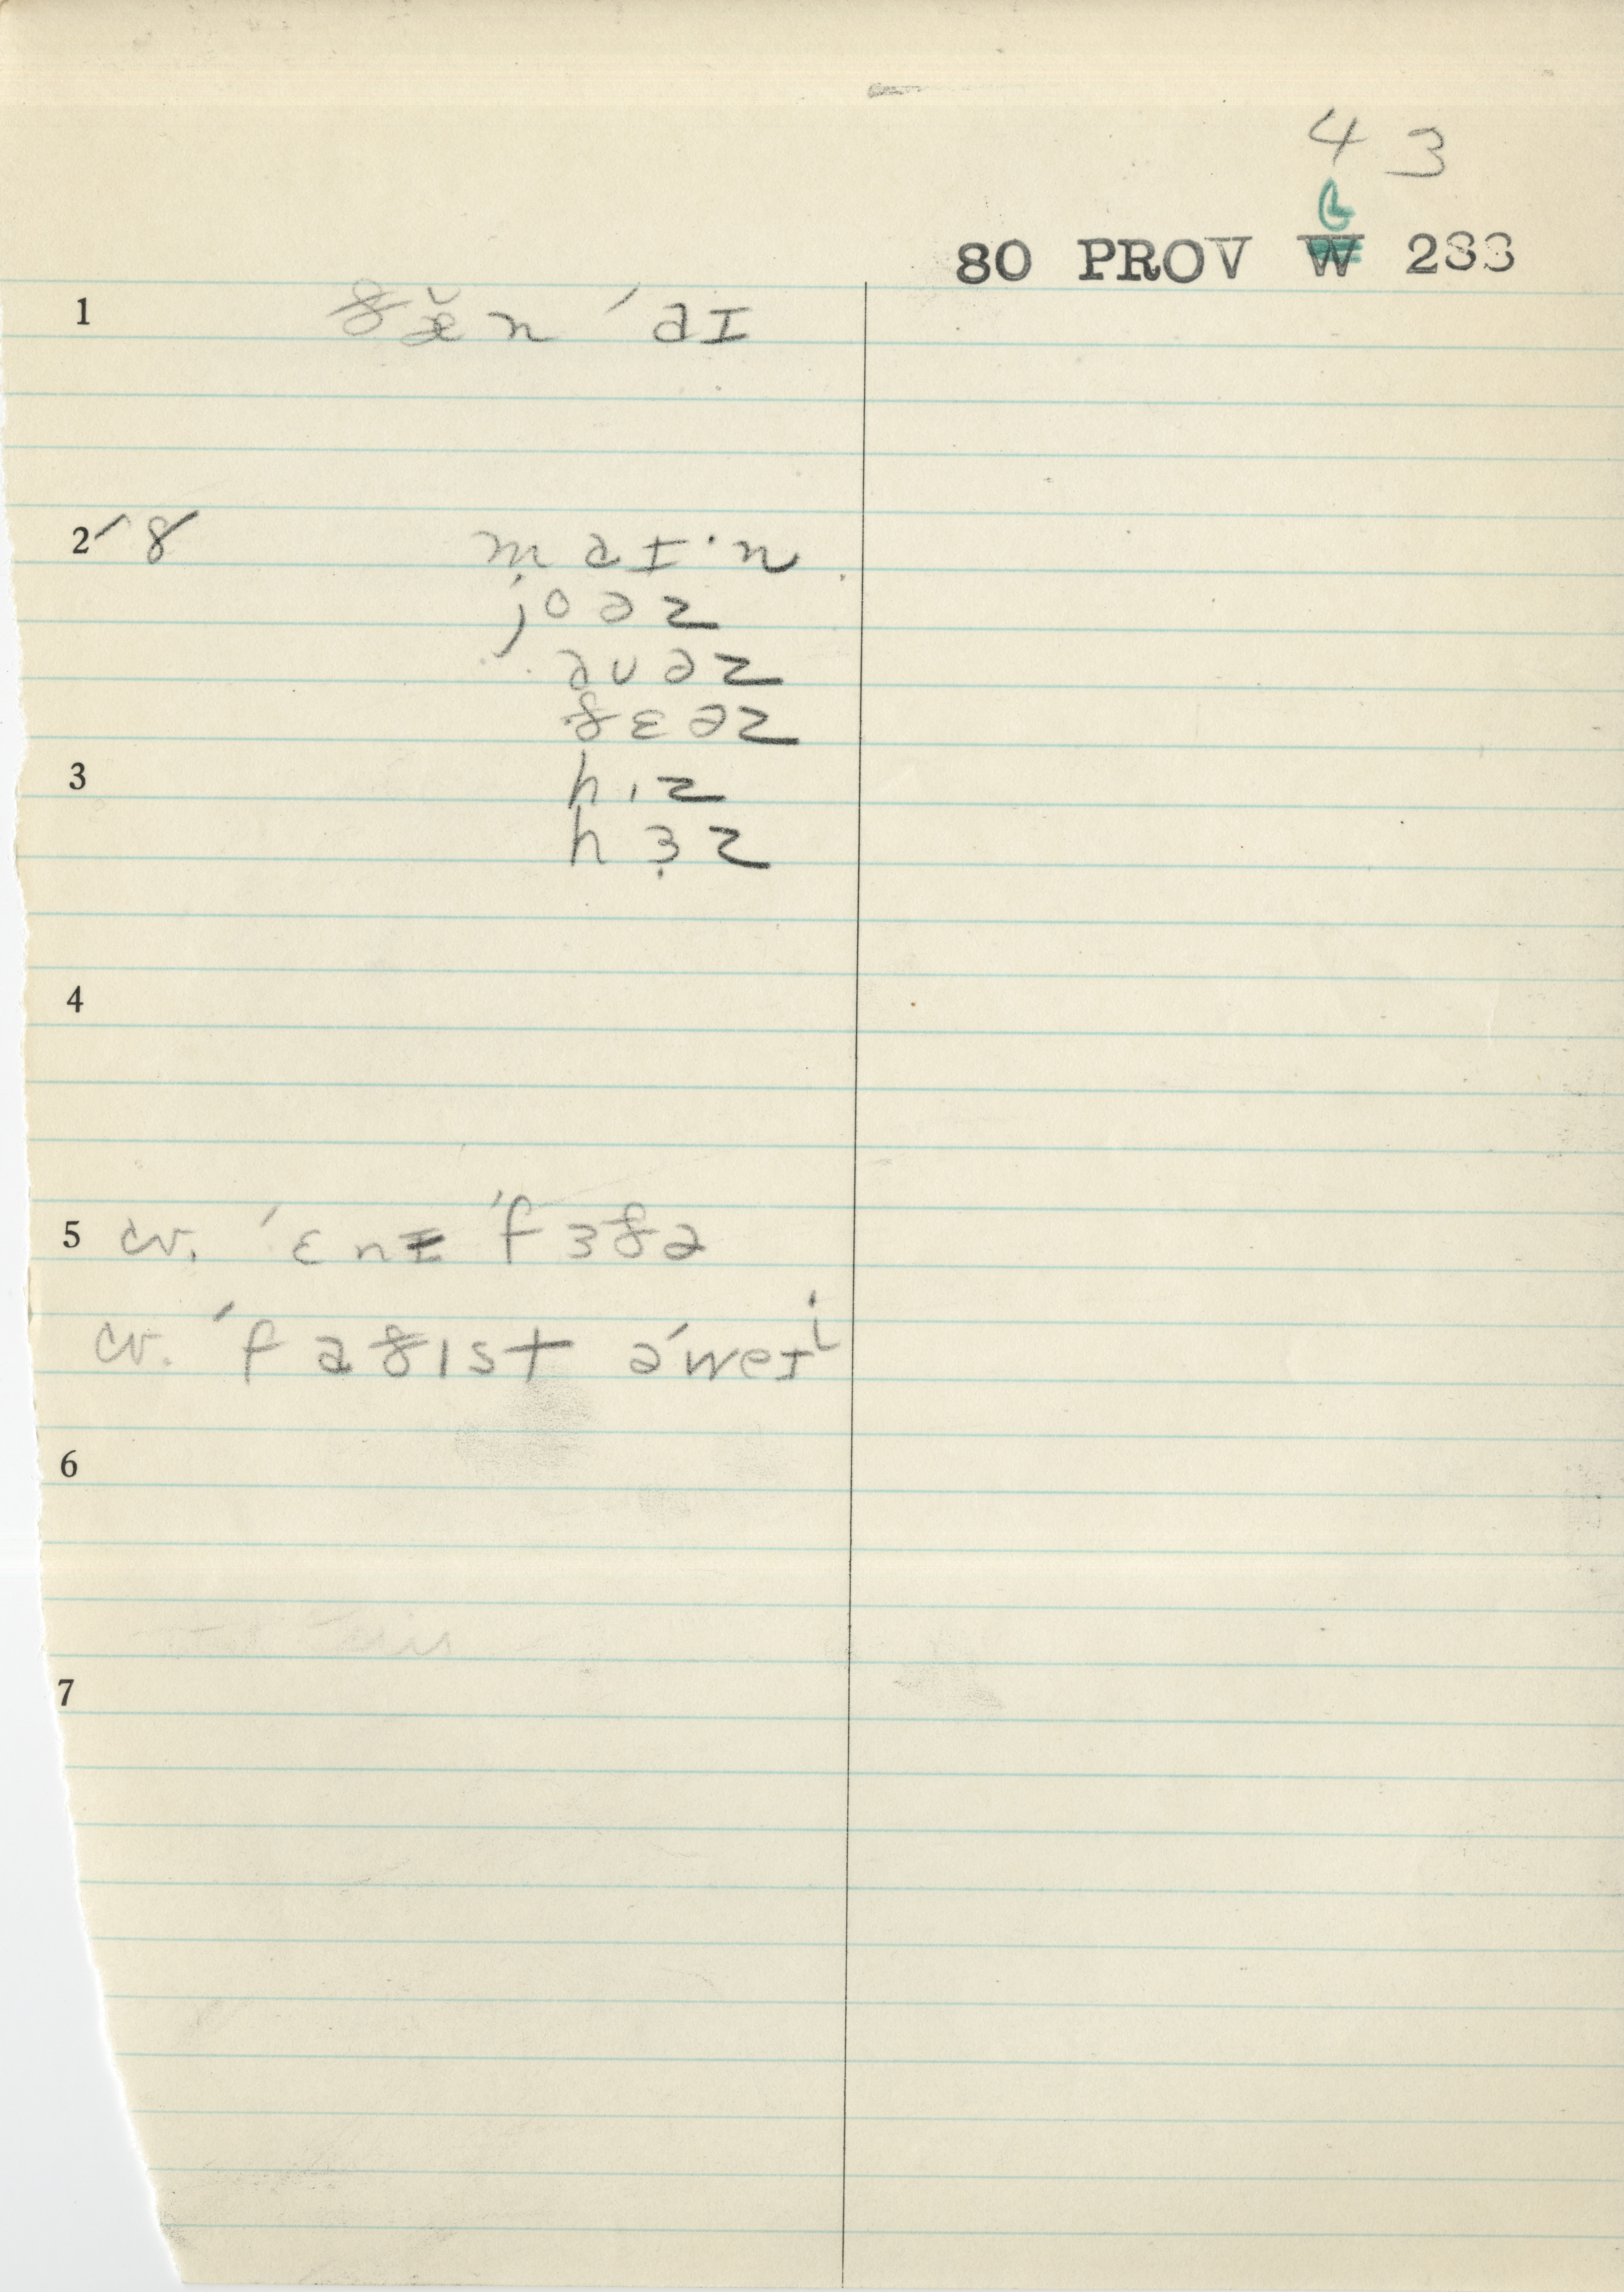 4 3
L
80 PROV W 288
1 ðæ̆n ˈaɪ
2 ˊ 8 maɪ·n
joəz
auəz
ðɛəz
3 hɪz
hɜ̣z
4
5 cv. ˈɛnɪ ˈfɜðə
cv. ˈfaðɪst əˈweɪⁱ
6
7